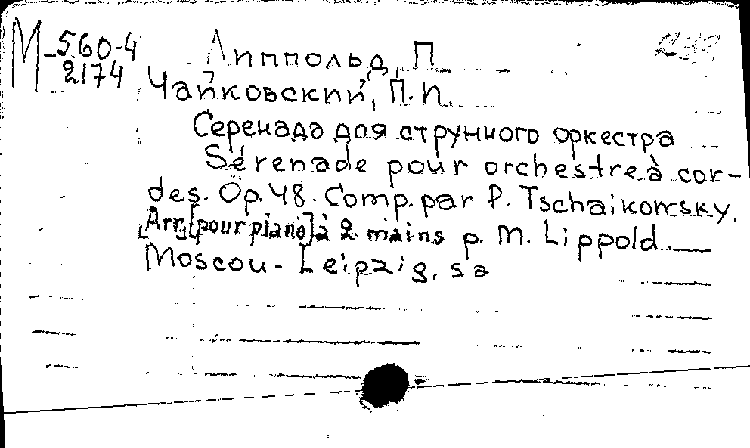 М 560-4
2174
Липпольд, П.
Чайковский, П.И.
Серенада для струнного оркестра
Sérenade pour orchestre à cor-
des. Op. 48. Comp. par P. Tschaikowsky.
[Arr. [pour piano] à 2 mains p. M. Lippold.
Moscou - Leipzig, sa